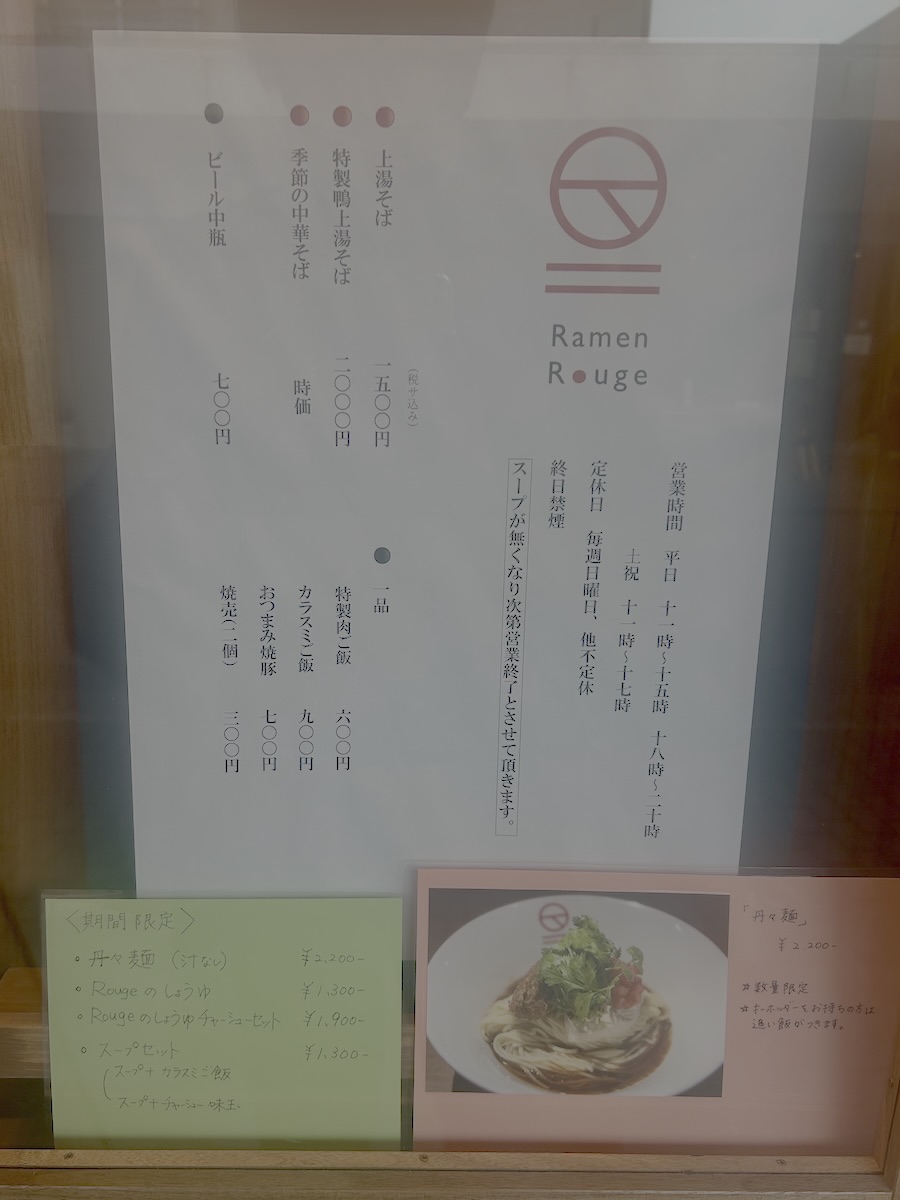 Ramen
Rouge
営業時間 平日 十一時〜十五時 十八時〜二十時
土祝 十一時〜十七時
定休日 毎週日曜日、他不定休
終日禁煙
スープが無くなり次第営業終了とさせて頂きます。
(税サ込み)
上湯そば 一五〇〇円
特製鴨上湯そば 二〇〇〇円
季節の中華そば 時価
ビール中瓶 七〇〇円
一品
特製肉ご飯 六〇〇円
カラスミご飯 九〇〇円
おつまみ焼豚 七〇〇円
焼売(二個) 三〇〇円
〈期間限定〉
丹々麺(汁なし) ¥2,200-
Rougeのしょうゆ ¥1,300-
Rougeのしょうゆチャーシューセット ¥1,900-
スープセット ¥1,300-
スープ+カラスミご飯
スープ+チャーシュー味玉
「丹々麺」
¥2200-
☆数量限定
☆キーホルダーをお持ちの方は
追い飯がつきます。